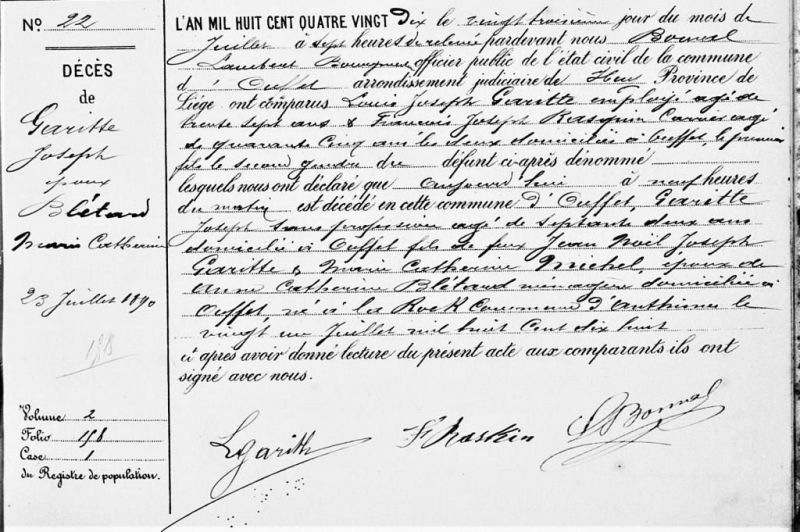 No 22
DÉCÈS
de
Garitte
Joseph
époux
Blétard
Marie Catherine
23 Juillet 1890
158
Volume 2
Folio 158
Case 1
du Registre de population.
L'AN MIL HUIT CENT QUATRE VINGT dix le vingt troisième jour du mois de
Juillet à sept heures de relevée pardevant nous Bonnal
Lambert Bourgmestre officier public de l'état civil de la commune
d' Ouffet arrondissement judiciaire de Huy Province de
Liége ont comparus Louis Joseph Garitte employé agé de
trente sept ans & François Joseph Rasquin Carrier agé
de quarante cinq ans les deux domiciliés à Ouffet, le premier
fils le second gendre du défunt ci-après dénommé
lesquels nous ont déclaré que aujourd'hui à neuf heures
du matin est décédé en cette commune d'Ouffet, Garitte
Joseph sans profession agé de septante deux ans
domicilié à Ouffet fils de feux Jean Noël Joseph
Garitte & Marie Catherine Michel, époux de
Anne Catherine Blétard ménagère domiciliée à
Ouffet, né à la Rock Commune d'Anthisnes le
vingt un Juillet mil huit Cent dix huit
ci après avoir donné lecture du présent acte aux comparants ils ont
signé avec nous.
LGaritte Fs Raskin LBonnal